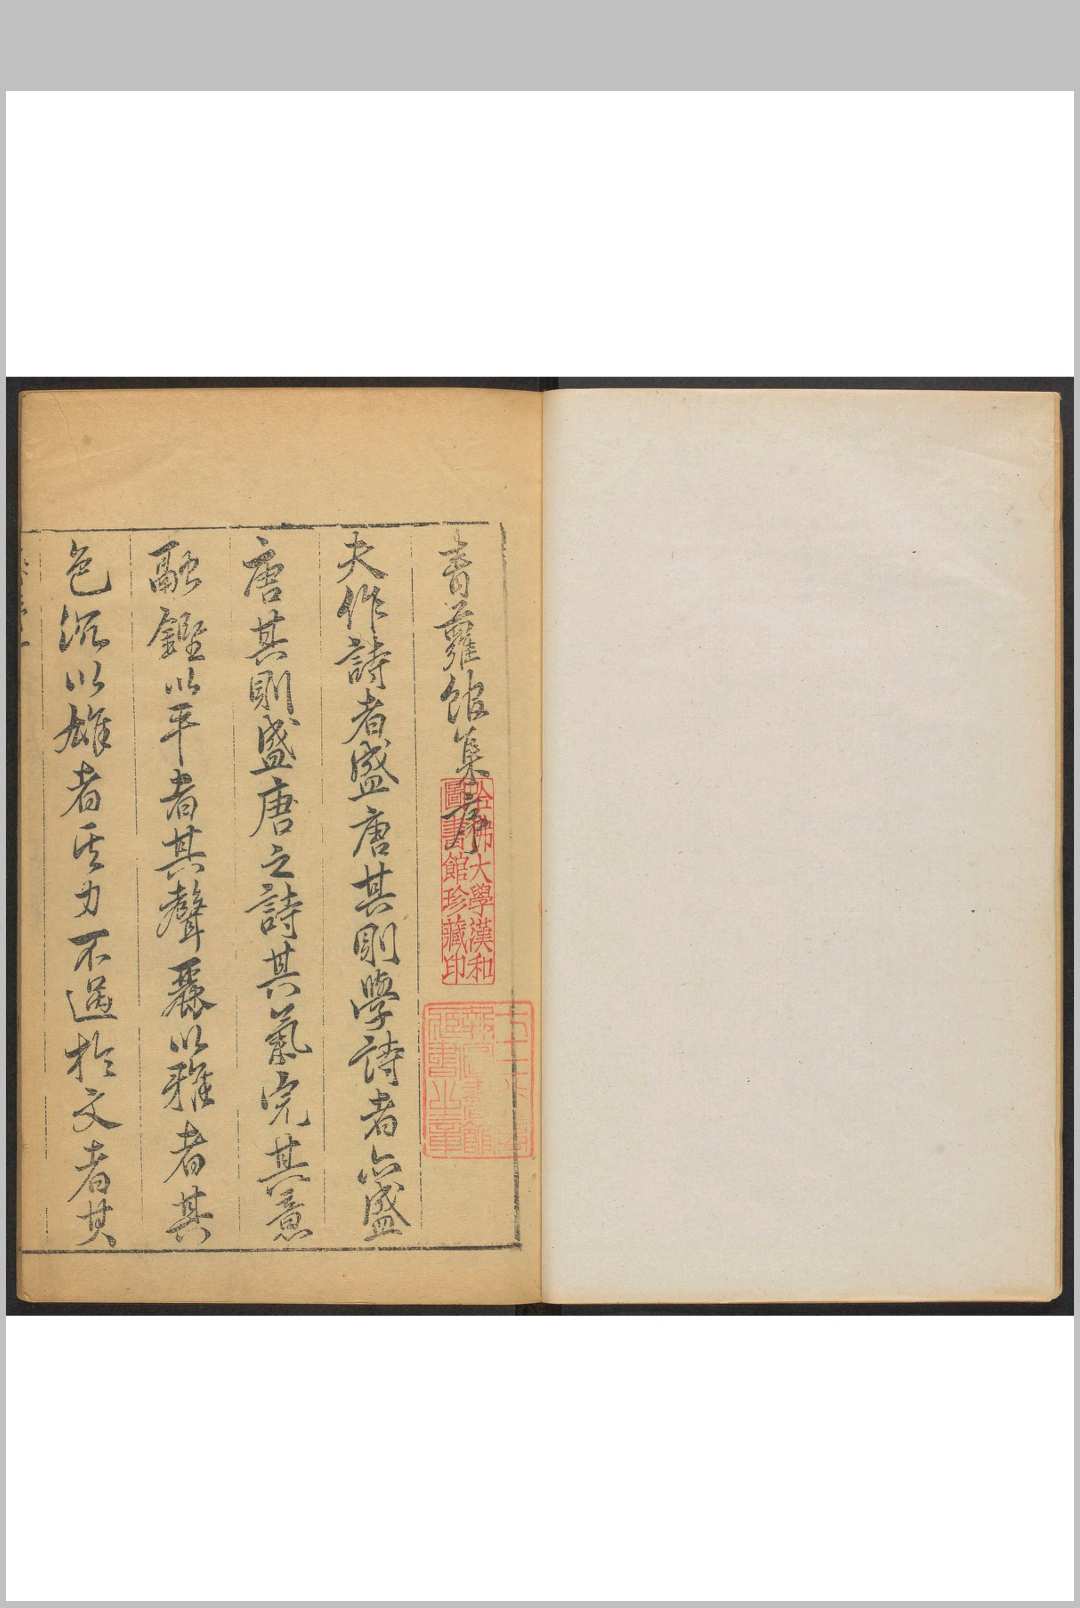 青蘿館集序
夫作詩者盛唐其則學詩者亦盛
唐其則盛唐之詩其氣完其意
融鏗以平者其聲麗以雅者其
色沉以雄者其力不過於文者其
哈佛大學漢和
圖書館珍藏印